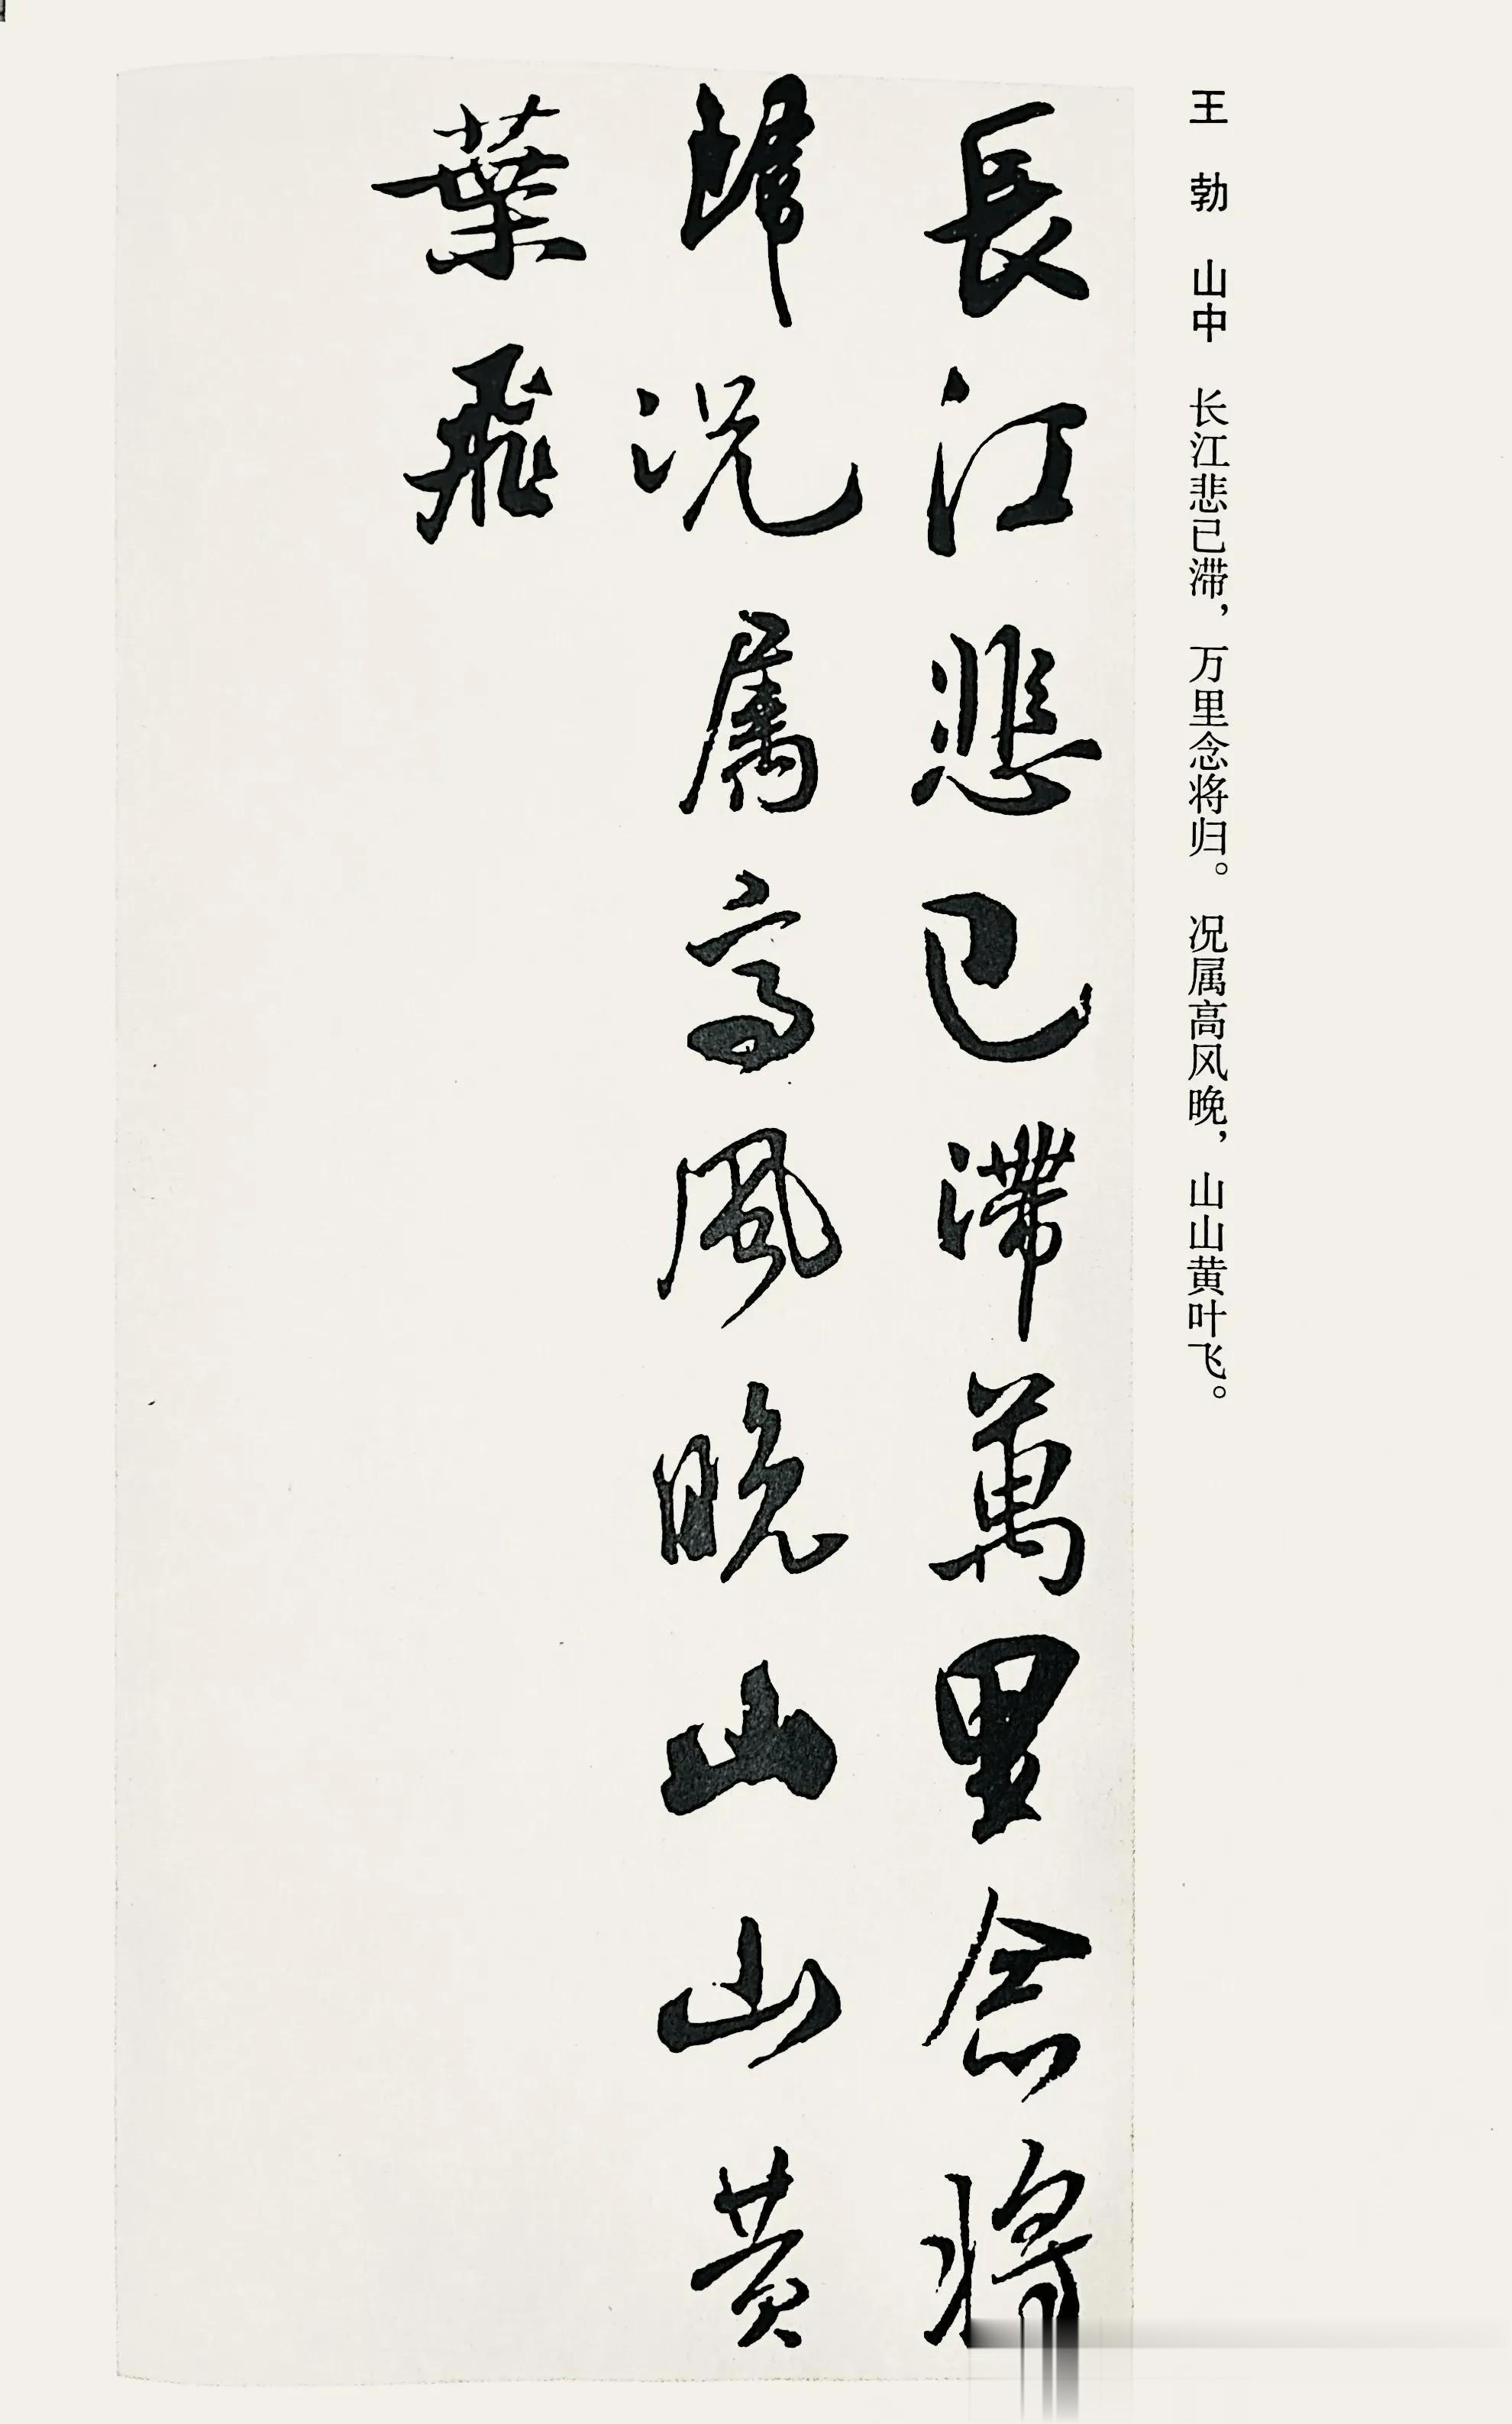 王勃 山中 长江悲已滞，万里念将归。况属高风晚，山山黄叶飞。
長江悲已滯萬里念將
歸况属高風晚山山黄
葉飛